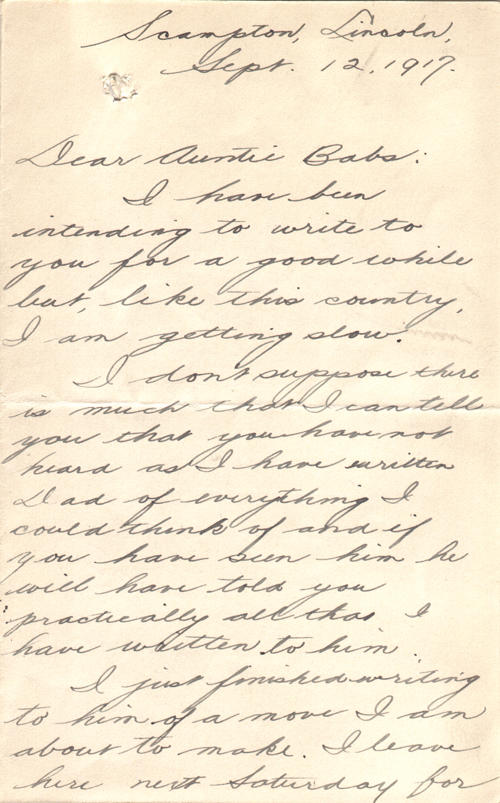 Scampton, Lincoln,
Sept. 12, 1917.
Dear Auntie Babs:
I have been
intending to write to
you for a good while
but, like this country,
I am getting slow.
I dont suppose there
is much that I can tell
you that you have not
heard as I have written
Dad of everything I
could think of and if
you have seen him he
will have told you
practically all that I
have written to him.
I just finished writing
to him of a move I am
about to make. I leave
here next Saturday for